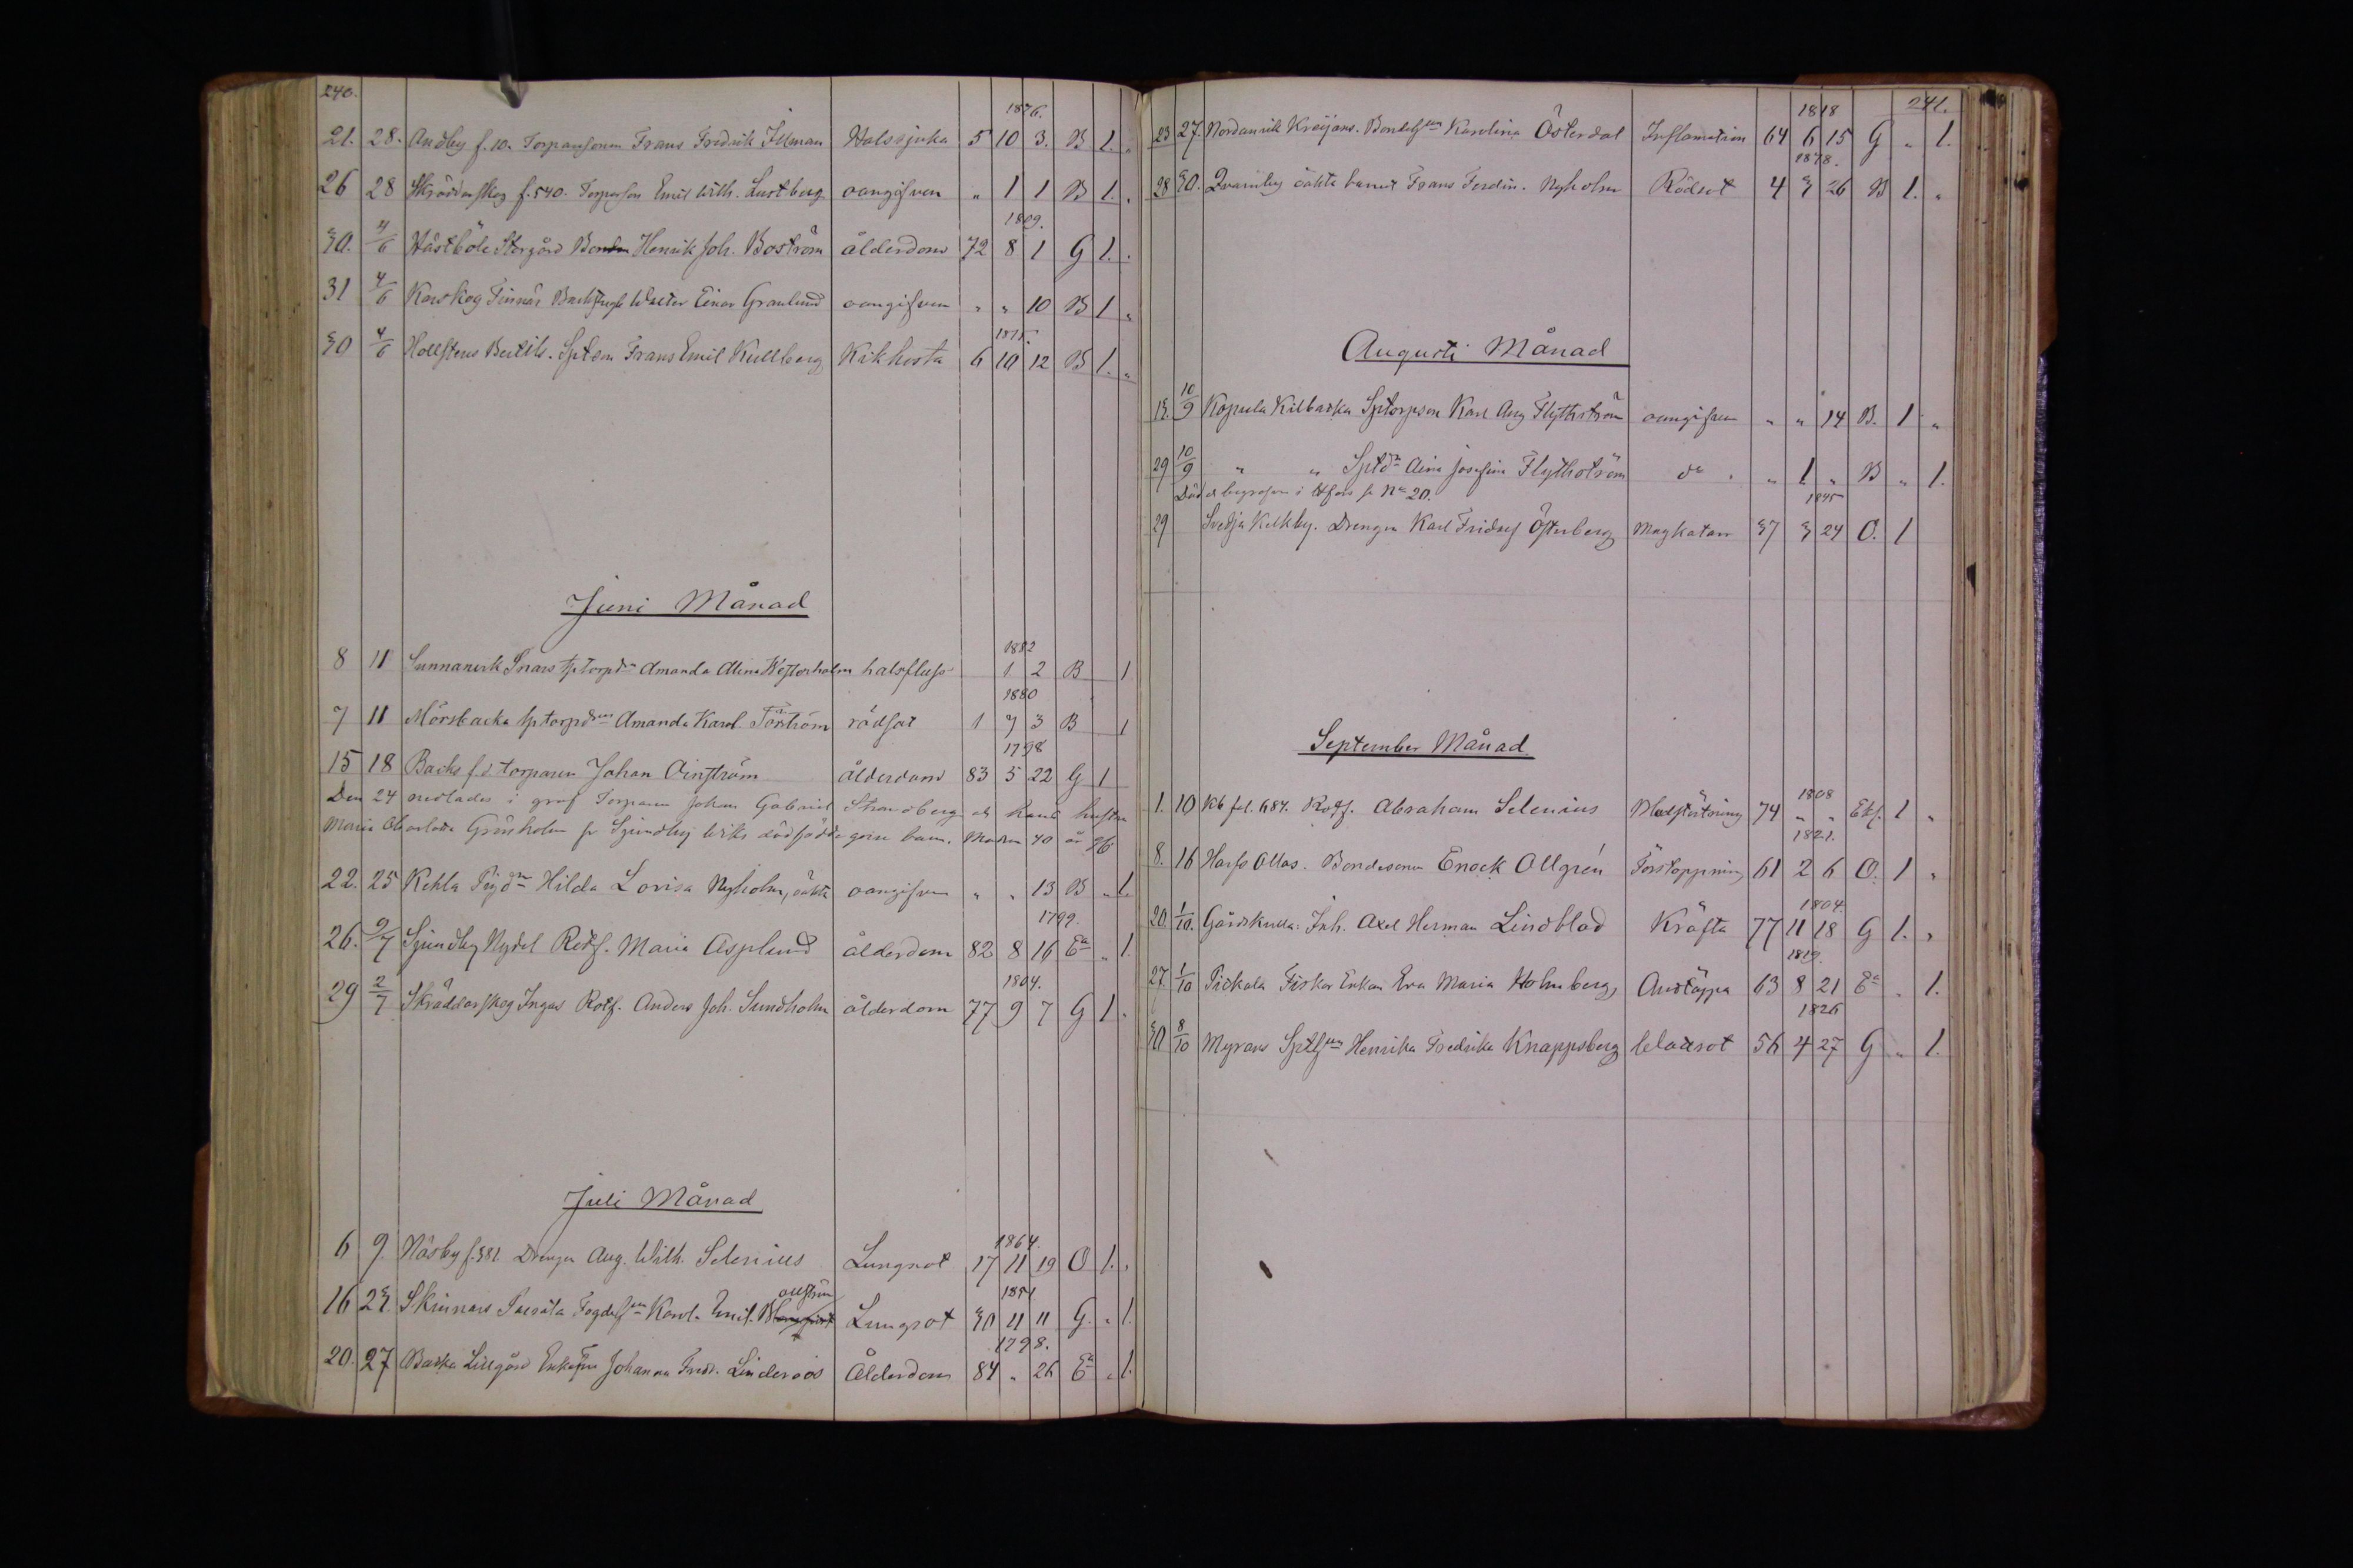 240.
1876.
21. 28. Andby f. 10. Torparsonen Frans Fredrik Illman Halssjuka 5 10 3. B 1. „
26 28 Skräddarskog f. 540. Torparson Emil Wilh. Lustberg oangifven „ 1 1 B 1. „
1809.
30. 4/6 Hästböle Storgård Bonden Henrik Joh. Boström ålderdom 72 8 1 G 1. „
31 4/6 Karskog Finnäs Walter Einar Granlund oangifven „ „ 10 B 1 „
1875.
30 4/6 Hollstens Bertils. Sptson Frans Emil Kullberg Kikhosta 6 10 12 B 1. „
Juni Månad
1882
8 11 Sunnanvik Snars sptorpdr Amanda Alina Westerholm halsfluss 1 2 B 1
1880
7 11 Mörsbacka sptorpdr Amanda Karol. Törström rödsot 1 7 3 B 1
1798
15 18 Backs f.d. torparen Johan Öinström ålderdom 83 5 22 G 1
Den 24 nedlades i graf Torparen Johan Gabriel Strandberg och hans hustru
Maria Charlotta Grönholm fr Sjundby Wiks dödfödda gosse barn. Modren 40 år
22. 25 Kehla Pigdr Hilda Lovisa Nyholm, oäkta oangifven „ „ 13 B „ 1.
1799.
26. 2/7 Sjundby Nydal Rothj. Maria Asplund ålderdom 82 8 16 Ea „ 1
1804.
29 2/7 Skräddarskog Ingas Rothj. Anders Joh. Sundholm ålderdom 77 9 7 G 1 „
Juli Månad
1864.
6 9. Näsby f. 381 Drengen Aug. Wilh. Selenius Lungsot 17 11 19 O 1. „
allström
1851
16 23. Skinnars Fogdehustrun Karol. Emil. Lungsot 30 11 11 G. „ 1.
1798.
20. 27 Backa Lillgård Enkefru Johanna Fred. Linderoos Ålderdom 84 „ 26 Ea „ 1.
241.
1818
23 27. Nordanvik Kröijars. Bondehustrun Karolina Österdal Inflamation 64 6 15 G „ 1.
1878.
28 30. Qvarnby oäkta barnet Frans Ferdin. Nyholm Rödsot 4 3 26 B 1. „
Augusti Månad
13. 10/9 Kopula Kilbacka Sptorpson Karl Aug Flythström oangifven „ „ 14 B. 1 „
29 10/9 „ „ Sptdr Aina Josefina Flythström do. „ 1 „ B „ 1.
Död och begrafven i Hfors fr No 20.
1845
29 Svedja Kelkby. Drengen Karl Fridolf Österberg Magkatarr 37 3 24 O. 1
September Månad
1808
1. 10 Kb fol. 687. Rothj. Abraham Selenius Blodstörtning 74 „ „ Ekl. 1 „
1821.
8. 16 Harfs Ollas. Bondesonen Enock Ollgrén Förstoppning 61 2 6 O. 1 „
1804.
20. 1/10. Gårdskulla. Inh. Axel Herman Lindblad Kräfta 77 11 18 G 1. „
1819.
27. 1/10 Pickala Fiskar Enkan Eva Maria Holmberg Andtäppa 63 8 21 Ea „ 1.
1826
30 8/10 Myrans Spthustrun Henrika Fredrika Knappsberg Watusot 56 4 27 G „ 1.